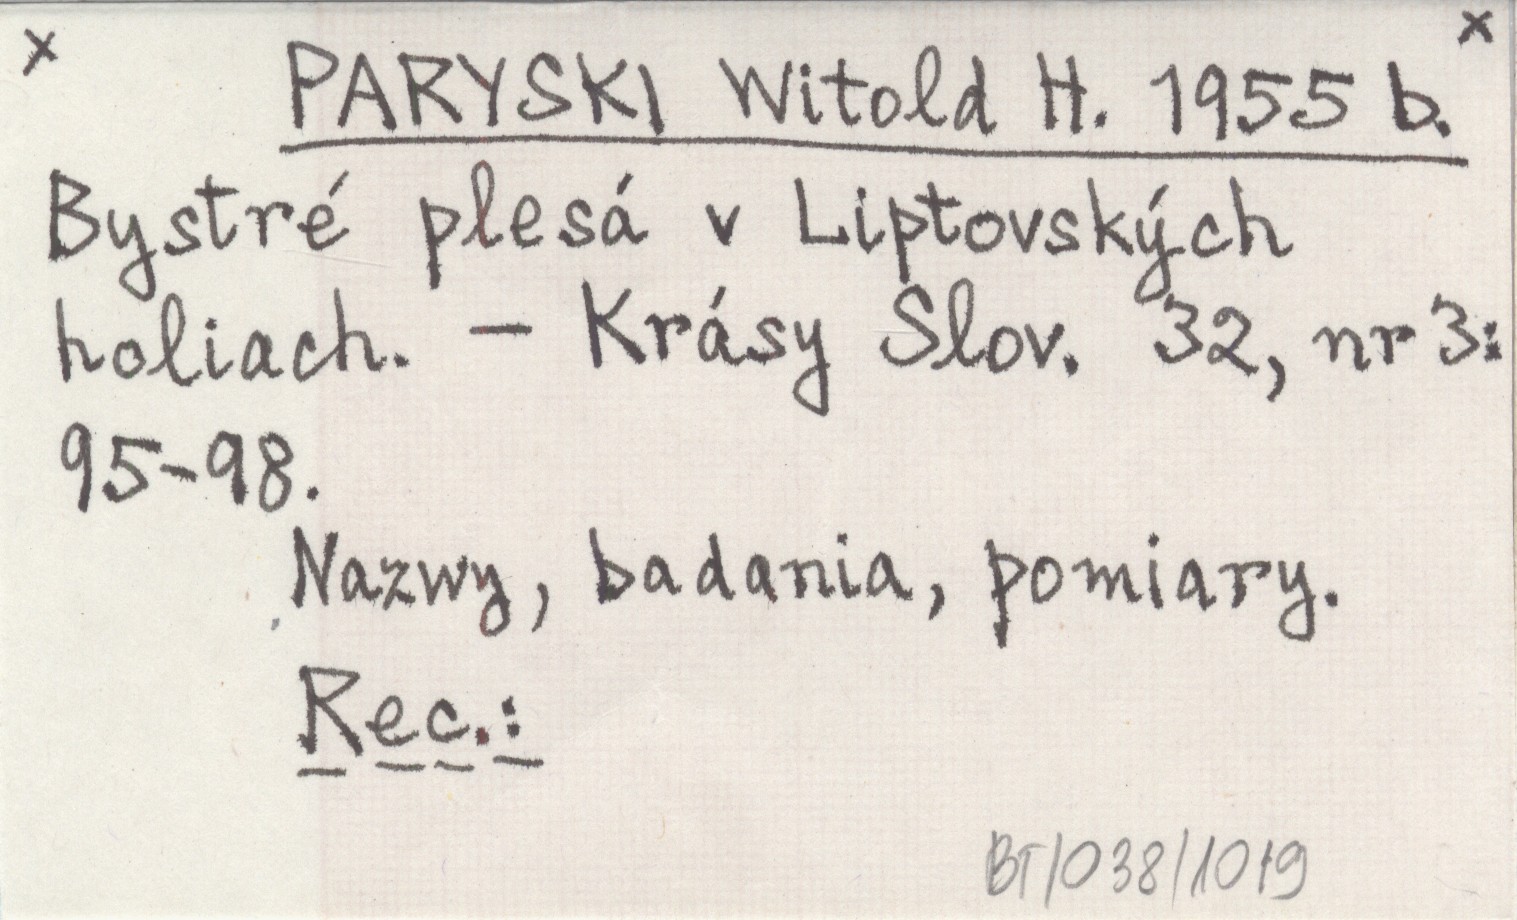 x x
PARYSKI Witold H. 1955 b.
Bystré plesá v Liptovských
holiach. – Krásy Slov. 32, nr 3:
95-98.
Nazwy, badania, pomiary.
Rec.:
BT/038/1019